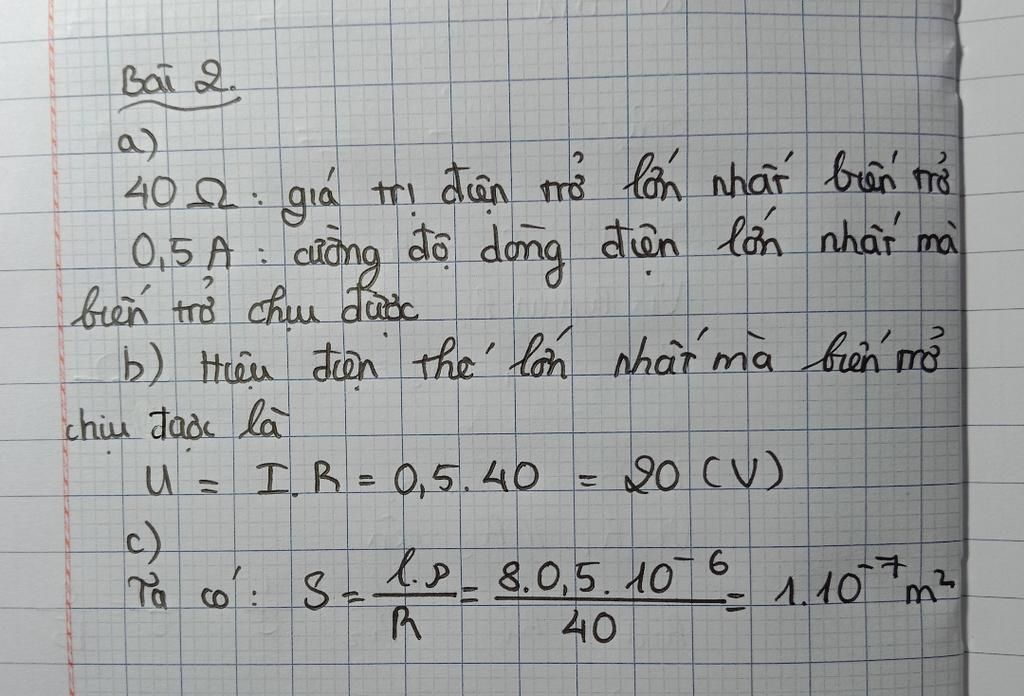 Bài 2.
a)
40 Ω : giá trị điện trở lớn nhất biến trở
0,5 A : cường độ dòng điện lớn nhất mà
biến trở chịu được
b) Hiệu điện thế lớn nhất mà biến trở
chịu được là
U = I. R = 0,5. 40 = 20 (V)
c)
Ta có : S = \frac{l.ρ}{R} = \frac{8. 0,5. 10^{-6}}{40} = 1.10^{-7} m^2